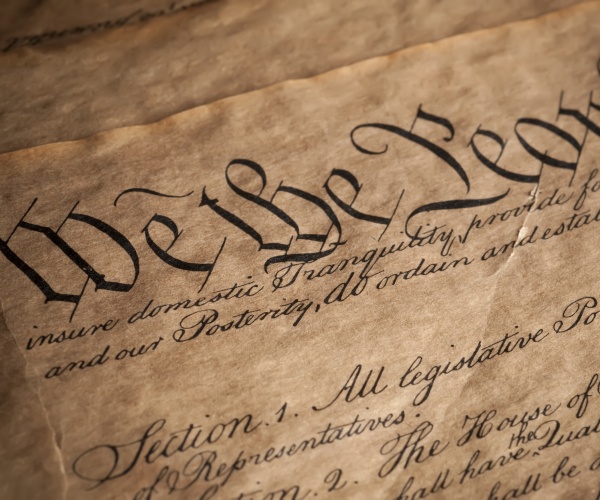 We the Peop
insure domestic Tranquility, provide fo
and our Posterity, do ordain and estab
Section. 1. All legislative Po
of Representatives.
tion. 2. The House of
the
hall have Qual
hall be a